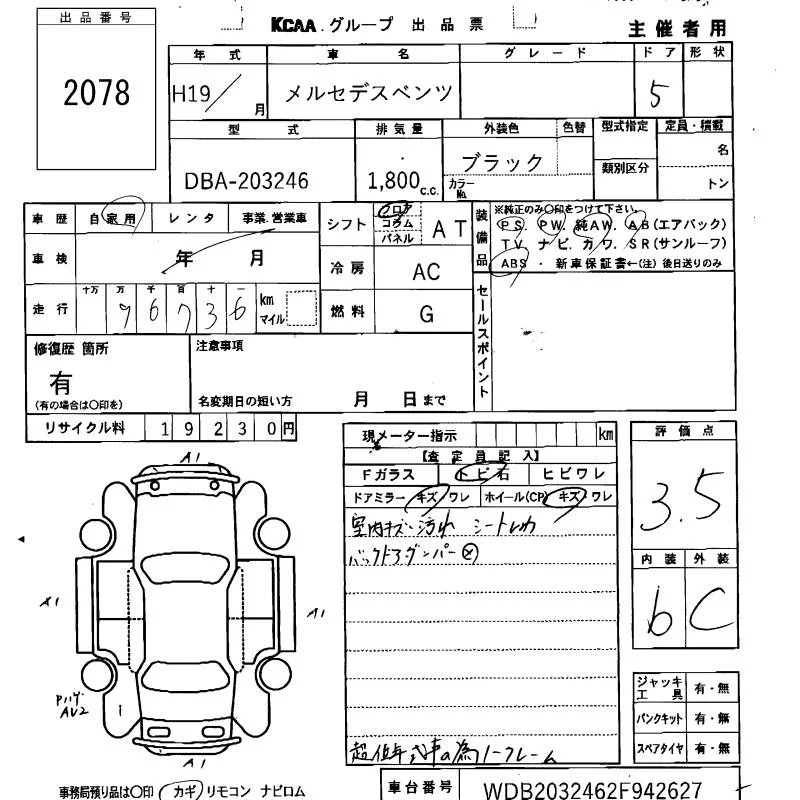 出品番号
2078
KCAA.グループ 出品票
主催者用
年式 車名 グレード ドア 形状
H19/ 月 メルセデスベンツ 5
型式 排気量 外装色 色替 型式指定 定員・積載
DBA-203246 1,800 c.c. ブラック カラーNo. 類別区分 名 トン
車歴 自家用 レンタ 事業.営業車
車検 年 月
走行 十万 万 千 百 十 一
96736 km マイル
シフト フロア コラム パネル AT
冷房 AC
燃料 G
装備品 ※純正のみ○印をつけて下さい。
PS. PW. 純AW. AB(エアバック)
TV. ナビ. カワ. SR(サンルーフ)
ABS ・ 新車保証書←(注)後日送りのみ
セールスポイント
修復歴 箇所
有
(有の場合は○印を)
注意事項
名変期日の短い方 月 日まで
リサイクル料 19230円
現メーター指示 km
【査定員記入】
Fガラス トビ石 ヒビワレ
ドアミラー キズ・ワレ ホイール(CP) キズ・ワレ
室内キズ・汚れ シートしわ
バックドアダンパー⊗
超低年式車の為ノークレーム
評価点
3.5
内装 外装
b C
ジャッキ工具 有・無
パンクキット 有・無
スペアタイヤ 有・無
A1
A1
A1
Pハゲ
AU2
A1
事務局預り品は○印 カギ リモコン ナビロム
車台番号 WDB2032462F942627